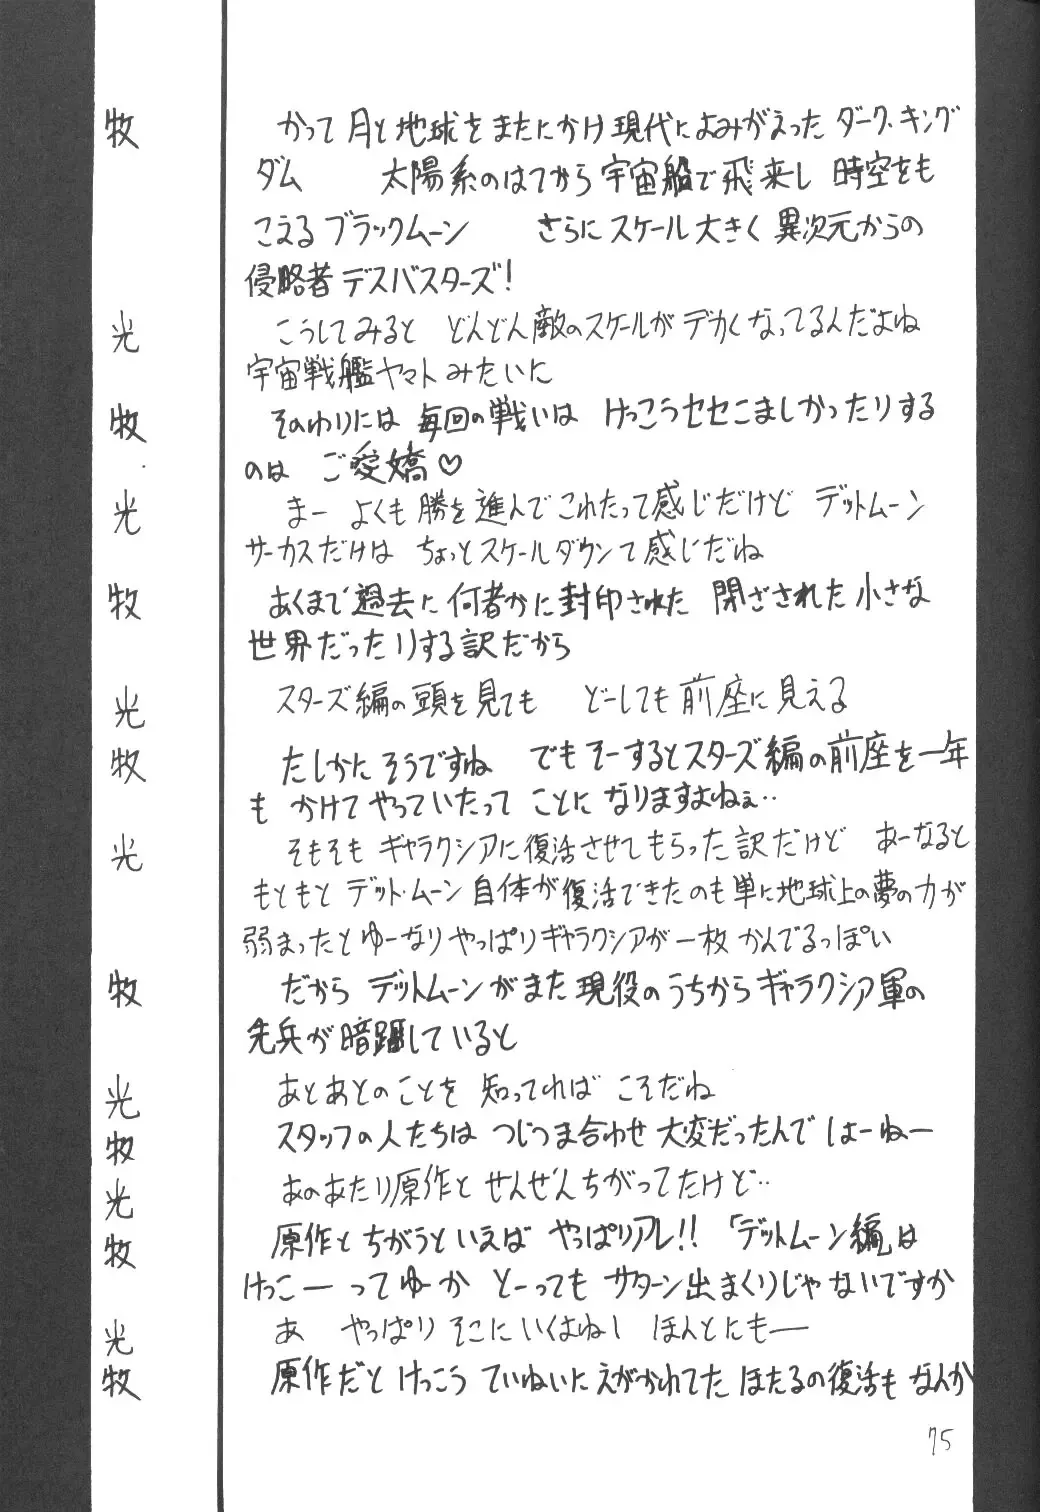 牧　かって月と地球をまたにかけ現代によみがえったダーク・キング
ダム　　太陽系のはてから宇宙船で飛来し 時空をも
こえるブラックムーン　　さらにスケール大きく異次元からの
侵略者デスバスターズ！
光　こうしてみると　どんどん敵のスケールがデカくなってるんだよね
宇宙戦艦ヤマトみたいに
牧　そのわりには 毎回の戦いは けっこうセセこましかったりする
のは　ご愛嬌♡
光　まー よくも勝を進んでこれたって感じだけど　デットムーン
サーカスだけは ちょっとスケールダウンて感じだね
牧　あくまで過去に何者かに封印された 閉ざされた小さな
世界だったりする訳だから
光　スターズ編の頭を見ても　どーしても前座に見える
牧　たしかにそうですね　でもそーするとスターズ編の前座を一年
も かけてやっていたって ことに なりますよねぇ‥
光　そもそも ギャラクシアに復活させてもらった訳だけど　あーなると
もともと デット・ムーン自体が復活できたのも単に地球上の夢の力が
弱まったとゆーなりやっぱりギャラクシアが一枚かんでるっぽい
牧　だから デットムーンがまた現役のうちからギャラクシア軍の
先兵が暗躍していると
光　あとあとのことを 知ってれば こそだね
牧　スタッフの人たちは つじつま合わせ大変だったんでしょーねー
光　あのあたり原作と せんぜんちがってたけど‥
牧　原作とちがうといえば やっぱりアレ!!「デットムーン編」は
けっこーってゆーか とーってもサターン出まくりじゃないですか
光　あ　やっぱり そこにいくよねー ほんとにもー
牧　原作だと けっこう ていねいにえがかれてた ほたるの復活も なんか
75